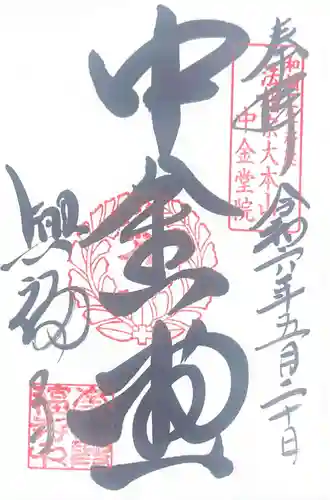 奉拝 令和六年五月二十日
法相宗大本山
中金堂院
中金堂
興福寺